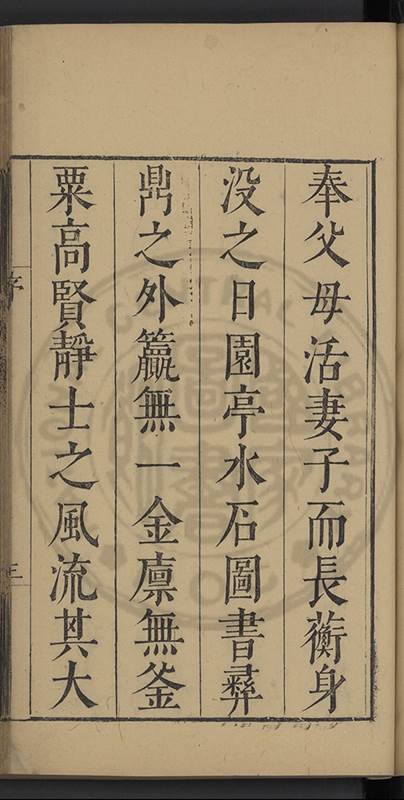 奉父母活妻子而長蘅身
沒之日園亭水石圖書彞
鼎之外籯無一金廪無釜
粟高賢靜士之風流其大
序
三